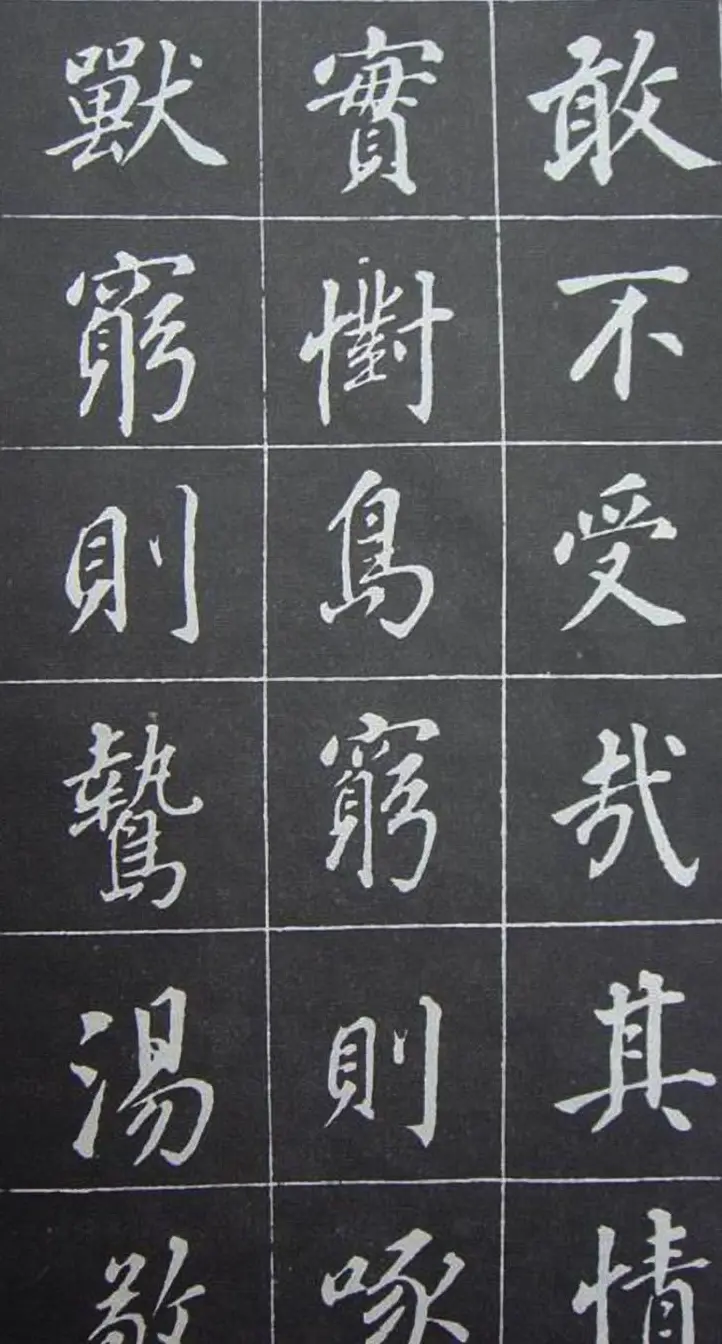 敢不受哉其情
實懟鳥窮則啄
獸窮則鷙湯